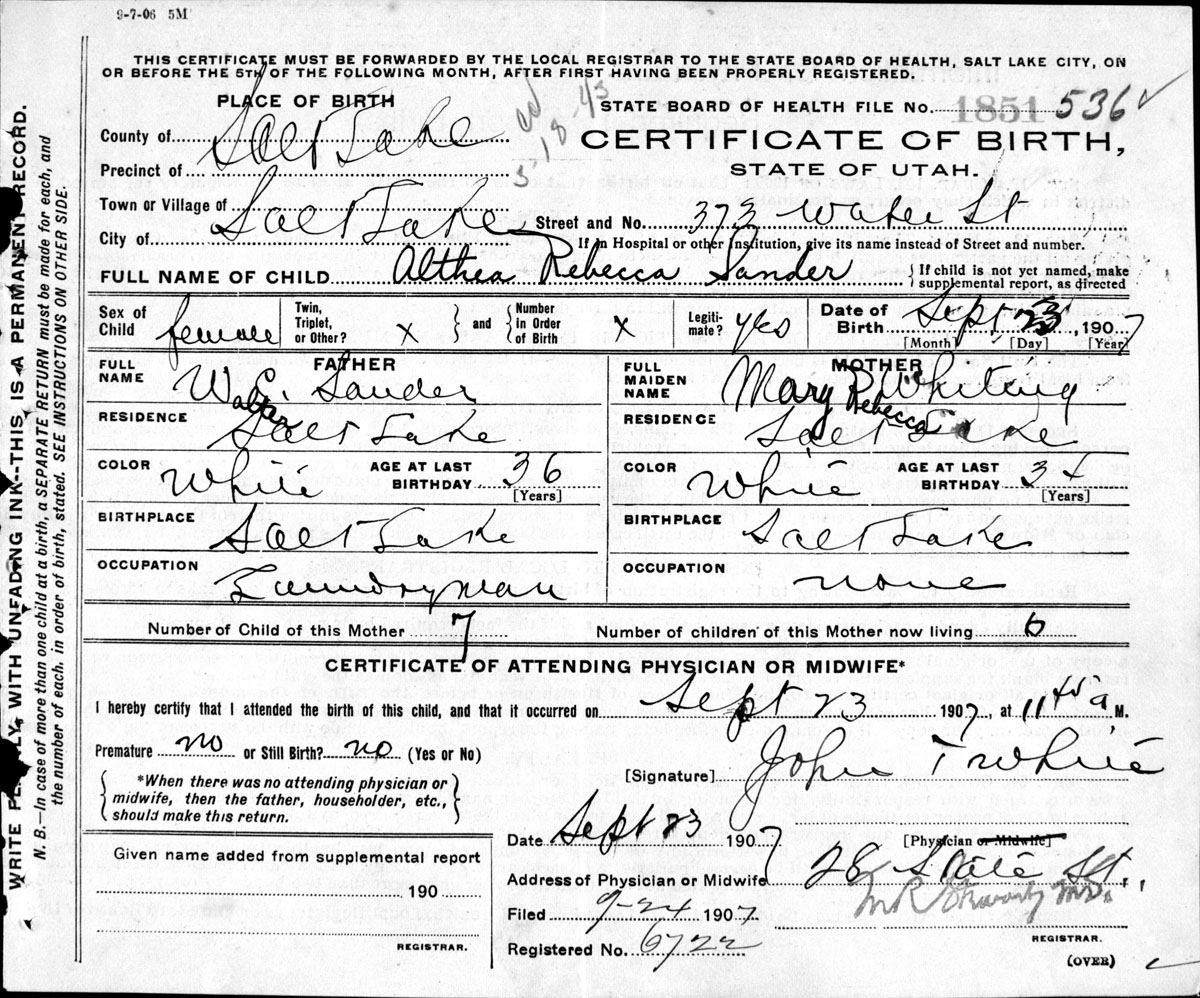 9-7-06 5M
THIS CERTIFICATE MUST BE FORWARDED BY THE LOCAL REGISTRAR TO THE STATE BOARD OF HEALTH, SALT LAKE CITY, ON
OR BEFORE THE 5TH OF THE FOLLOWING MONTH, AFTER FIRST HAVING BEEN PROPERLY REGISTERED.
PLACE OF BIRTH
STATE BOARD OF HEALTH FILE No. 1851 536
County of Salt Lake
CERTIFICATE OF BIRTH,
Precinct of
STATE OF UTAH.
Town or Village of
Street and No. 373 Water St
City of Salt Lake
If in Hospital or other Institution, give its name instead of Street and number.
FULL NAME OF CHILD Althea Rebecca Sander
If child is not yet named, make
supplemental report, as directed
Sex of Child female
Twin, Triplet, or Other? X
and Number in Order of Birth X
Legiti-mate? yes
Date of Birth Sept 23, 1907
[Month] [Day] [Year]
FATHER
MOTHER
FULL NAME W. Sander
Walter
FULL MAIDEN NAME Mary R Whiting
Rebecca
RESIDENCE Salt Lake
RESIDENCE Salt Lake
COLOR White
AGE AT LAST BIRTHDAY 36 [Years]
COLOR White
AGE AT LAST BIRTHDAY 34 [Years]
BIRTHPLACE Salt Lake
BIRTHPLACE Salt Lake
OCCUPATION Laundryman
OCCUPATION none
Number of Child of this Mother 7
Number of children of this Mother now living 6
CERTIFICATE OF ATTENDING PHYSICIAN OR MIDWIFE*
I hereby certify that I attended the birth of this child, and that it occurred on Sept 23 1907, at 11 45 a M.
Premature no or Still Birth? no (Yes or No)
[Signature] John T White
*When there was no attending physician or
midwife, then the father, householder, etc.,
should make this return.
Date Sept 23 1907
[Physician or Midwife]
Given name added from supplemental report
Address of Physician or Midwife 28 State St.,
190
Filed 9-24 1907
REGISTRAR.
Registered No. 6722
REGISTRAR.
(OVER)
WRITE PLAINLY WITH UNFADING INK--THIS IS A PERMANENT RECORD.
N. B.—In case of more than one child at a birth, a SEPARATE RETURN must be made for each, and
the number of each, in order of birth, stated. SEE INSTRUCTIONS ON OTHER SIDE.